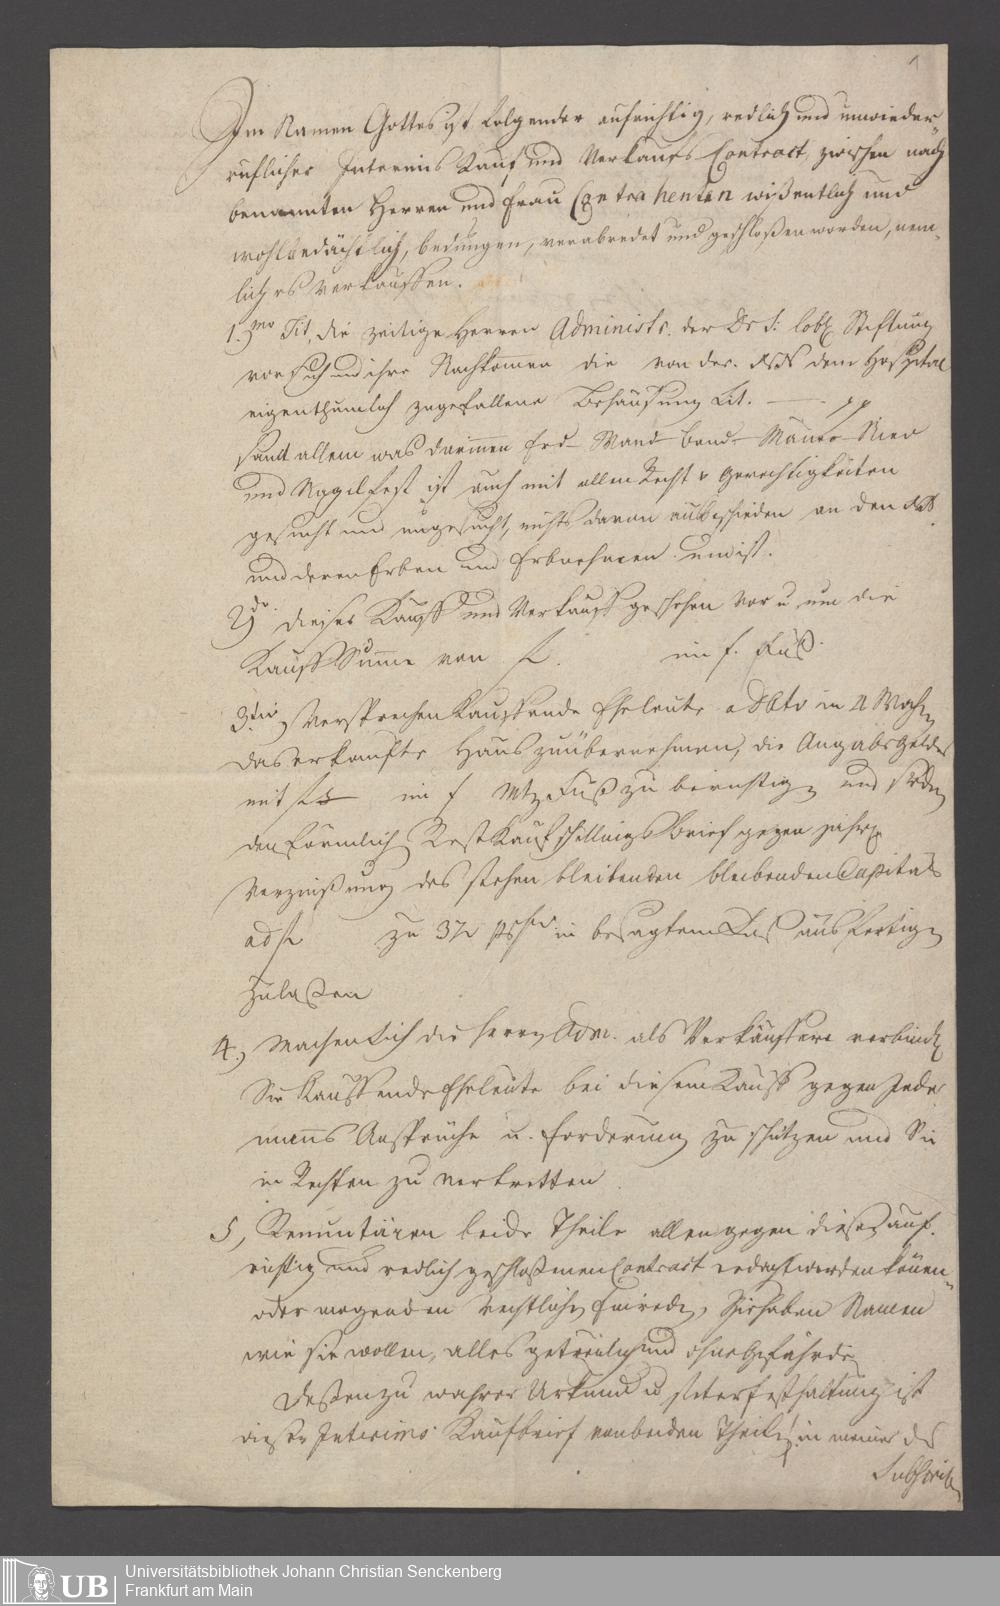 1
Im Namen Gottes ist folgender aufrichtig, redlich und unwieder„
ruflicher Interims Kauf und Verkaufs Contract, zwischen nach
benannten Herren und Frau Contrahenten wißentlich und
wohlbedächtlich, bedungen, verabredet und geschloßen worden, nem„
lich es verkauffen.
1.mo Tit. die zeitige Herren Administr. der Dr S: löbl. Stiftung
vor sich und ihre Nachkommen die von der. NN dem Hospital
eigenthumlich zugefallene Behäußung Lit. — . pp
samt allem was darinnen Erd- Wand- Band- Mauer- Nied
und Nagelfest ist auch mit allen Recht u Gerechtigkeiten
gesucht und ungesucht, nichts davon ausbeschieden an den NN.
und deren Erben und Erbnehmen
2)do. dieser Kauff und Verkauff geschehen vor u um die
Kauff Summe von f. im f. Fuß.
3.tio, Versprechen Kauffende Eheleute a Dato in 4 Wochen
das erkaufte Haus zuübernehmen, die Angabs Gelder
mit f im f Fuß zu berichtigen und
den förmlich Rest Kaufschillings Brief gegen jährl.
Verzinßung des stehen bleibenden bleibenden Capitals
ad f zu 3½ in besagtem Fuß ausfertigen
zulaßen
4., Machen sich die Herrn Adm. als Verkäuffere verbindl.
Die Kauffende Eheleute bei diesem Kauff gegen Jeder
manns Ansprüche u. Forderung zu schützen und Sie
in Rechten zu vertretten.
5, Renuntiiren beide Theile allen gegen diesen auf„
richtig und redlich geschloßenen Contract erdacht werden können„
oder mögenden rechtlichen Einreden, Sie haben Namen
wie sie wollen, alles getreulich und ohne Gefährde
Deßen zu wahrer Urkund u steter Festhaltung ist
dieser Interims Kaufbrief von beiden Theilen in meiner des
Subscrib.
UB
Universitätsbibliothek Johann Christian Senckenberg
Frankfurt am Main